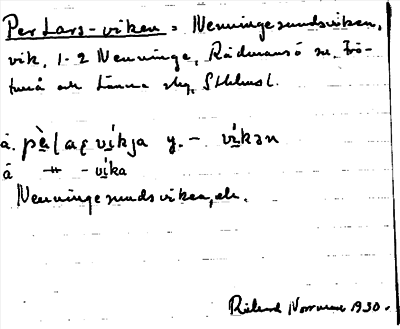 Per Lars-viken = Nenningesundsviken,
vik, 1-2 Nenninge, Rådmansö sn, Frö-
tuna och Länna skg, Sthlms l.
å. pὲlaṣvíkja y. - víkən
ā -"- - víka
Nenningesundsviken, ek.
Rickard Norrman 1930.